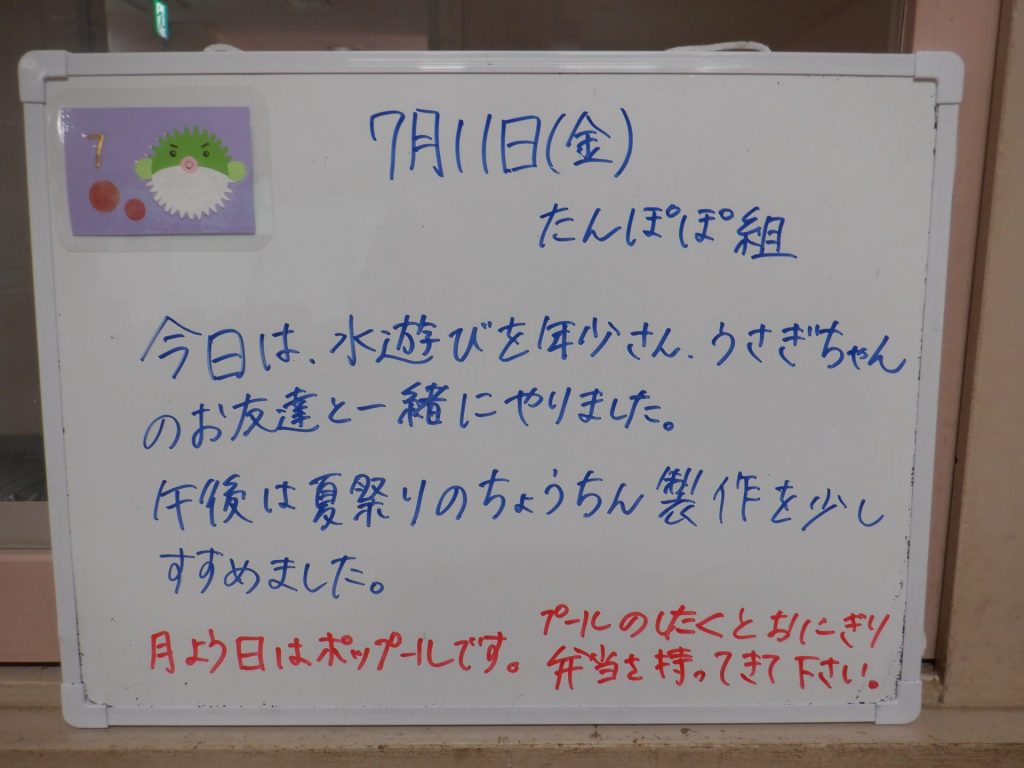 7
7月11日(金)
たんぽぽ組
今日は、水遊びを年少さん、うさぎちゃん
のお友達と一緒にやりました。
午後は夏祭りのちょうちん製作を少し
すすめました。
月よう日はポップールです。
プールのしたくとおにぎり
弁当を持ってきて下さい。